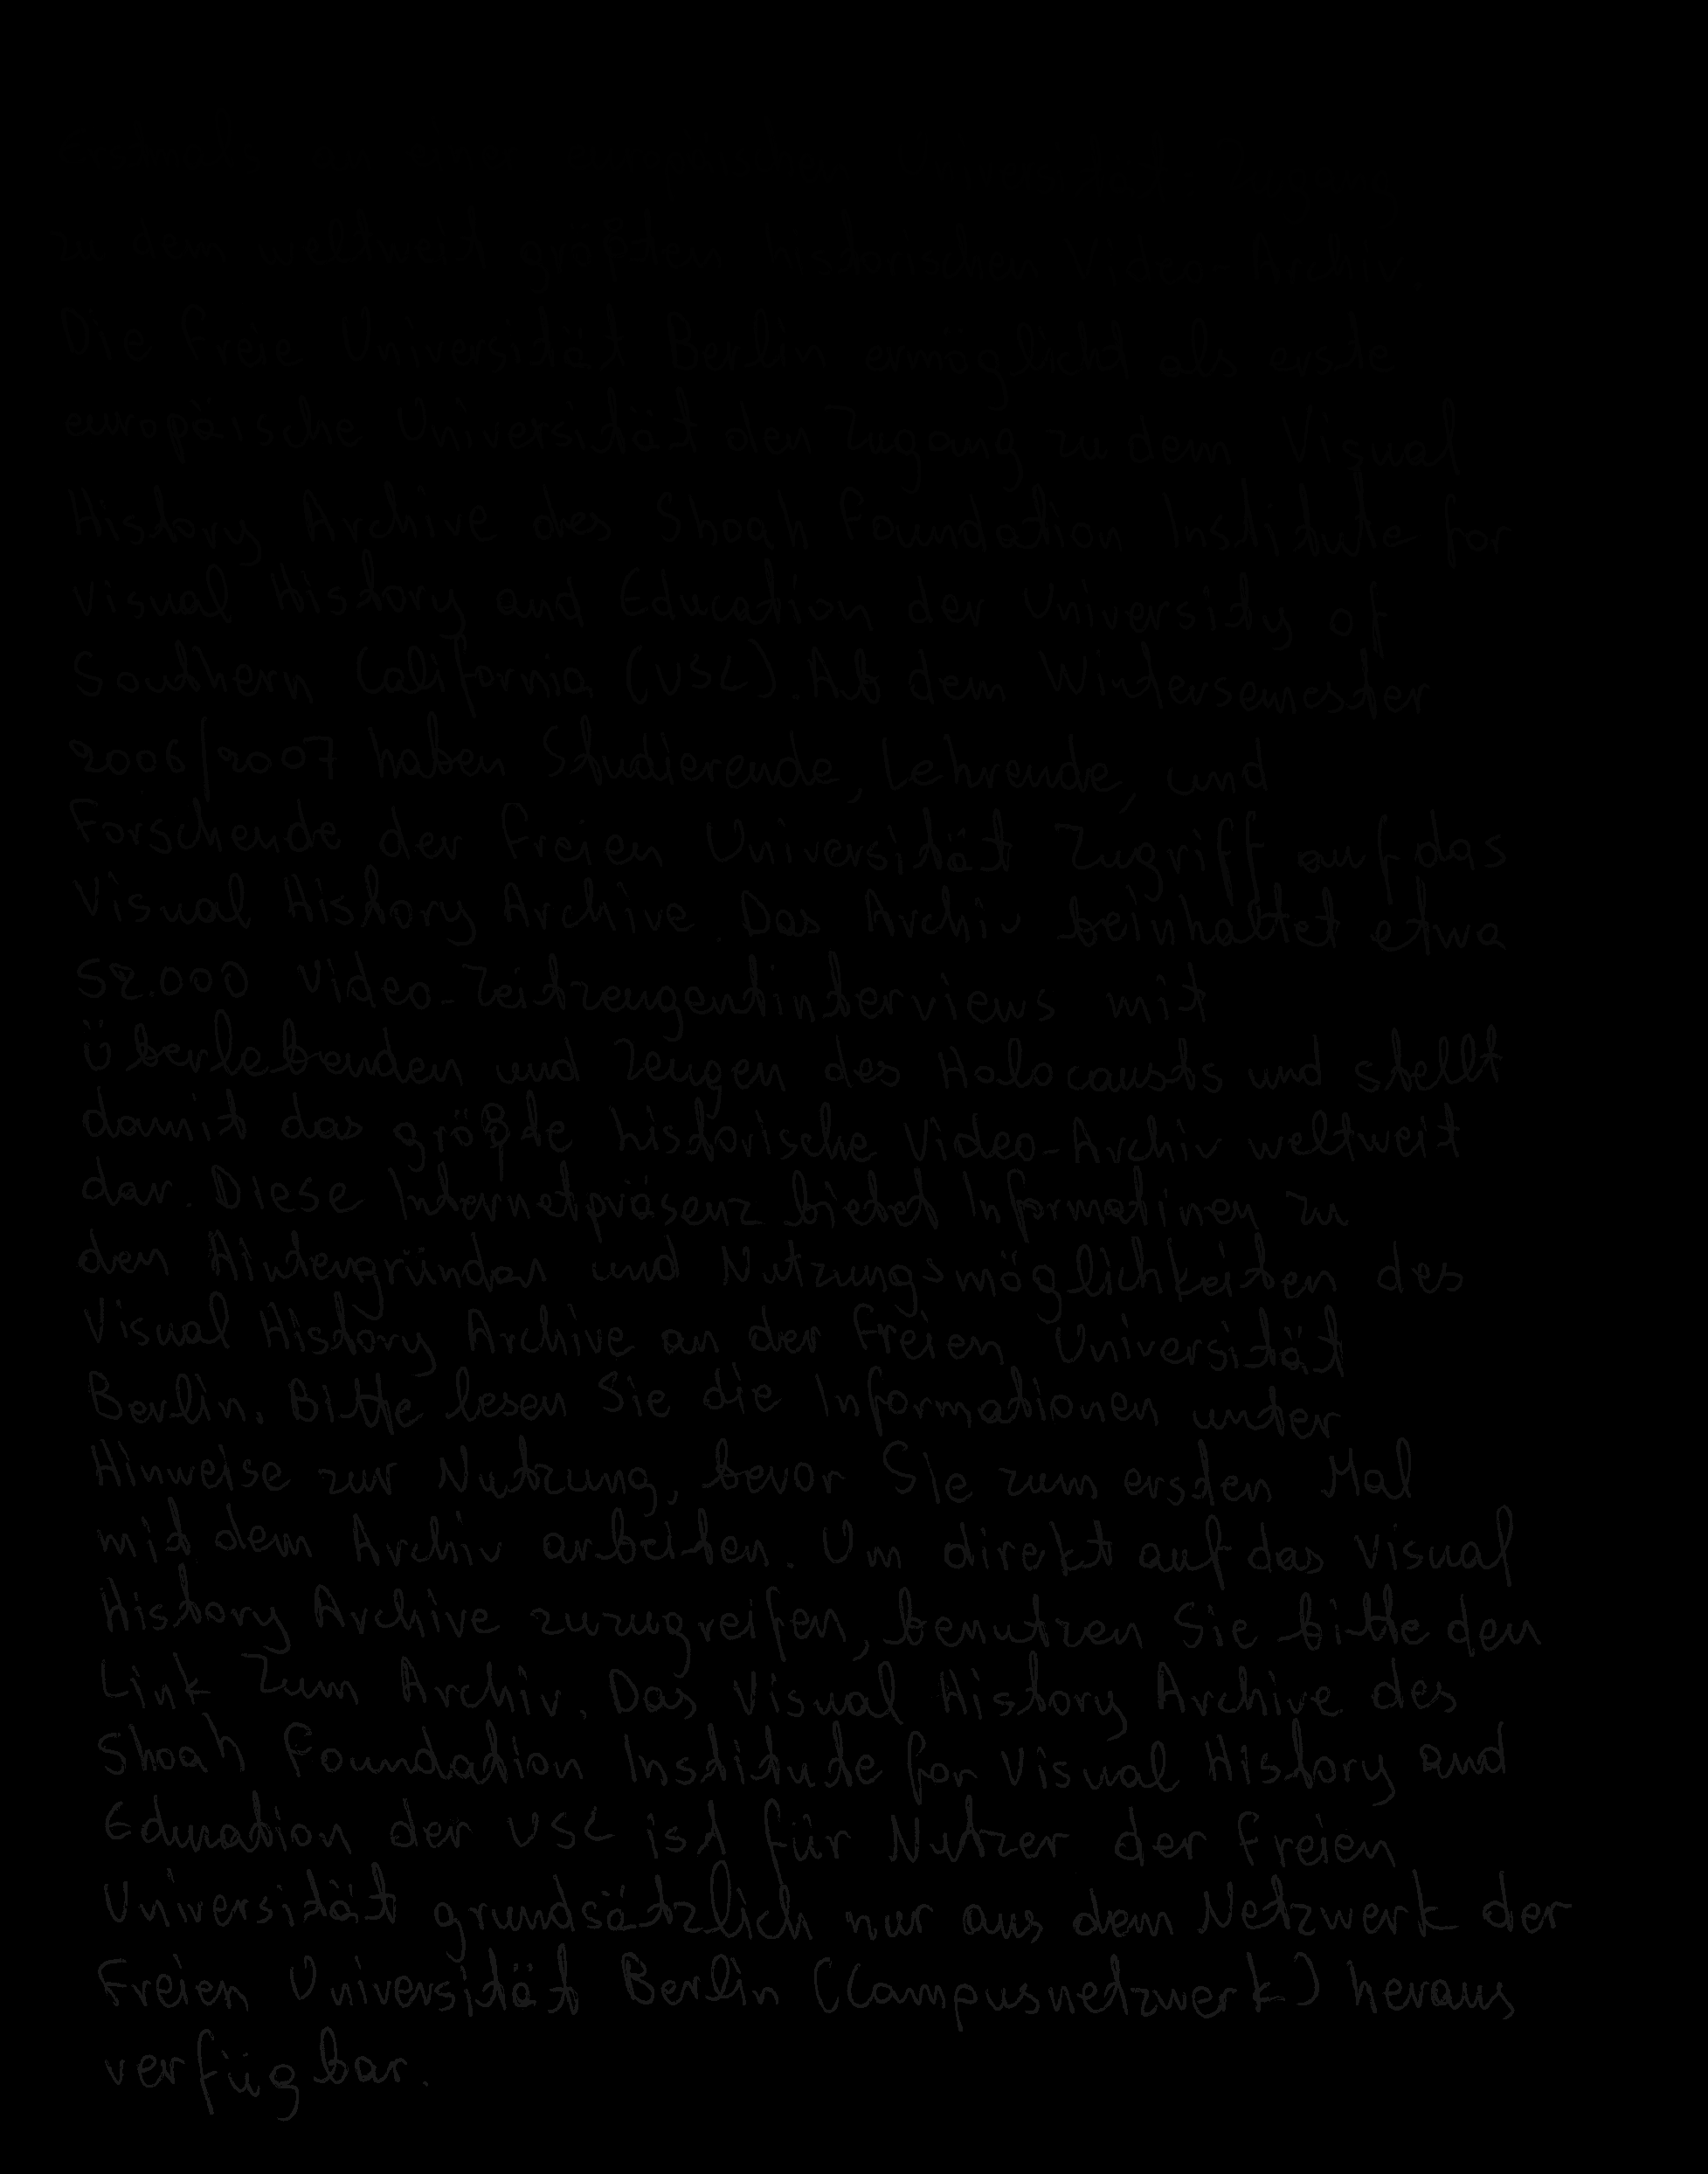 zu dem weltweit größten historischen Video-Archiv.
Die Freie Universität Berlin ermöglicht als erste
europäische Universität den Zugang zu dem Visual
History Archive des Shoah Foundation Institute for
Visual History and Education der University of
Southern California (USC). Ab dem Wintersemester
2006/2007 haben Studierende, Lehrende, und
Forschende der Freien Universität Zugriff auf das
Visual History Archive. Das Archiv beinhaltet etwa
52.000 Video-Zeitzeugentinterviews mit
Überlebenden und Zeugen des Holocausts und stellt
damit das größte historische Video-Archiv weltweit
dar. Diese Internetpräsenz bietet Informatinen zu
den Hintengründen und Nutzungsmöglichkeiten des
Visual History Archive an der Freien Universität
Berlin. Bitte lesen Sie die Informationen unter
Hinweise zur Nutzung, bevor Sie zum ersten Mal
mit dem Archiv arbeiten. Um direkt auf das Visual
History Archive zuzugreifen, benutzen Sie bitte den
Link Zum Archiv. Das Visual History Archive des
Shoah Foundation Institute for Visual History and
Education der USC ist für Nutzer der Freien
Universität grundsätzlich nur aus dem Netzwerk der
Freien Universität Berlin (Campusnetzwerk) heraus
verfügbar.